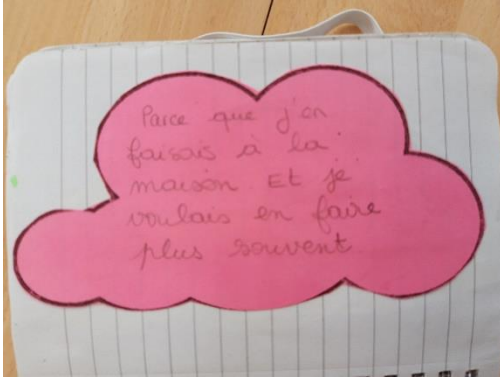 Parce que j'en
faisais à la
maison. Et je
voulais en faire
plus souvent